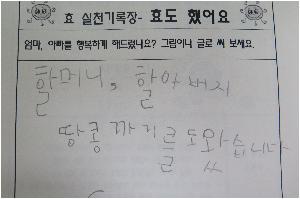 효 실천기록장- 효도 했어요
엄마, 아빠를 행복하게 해드렸나요? 그림이나 글로 써 보세요.
할머니, 할아버지
땅콩 까기를 도왔습니다